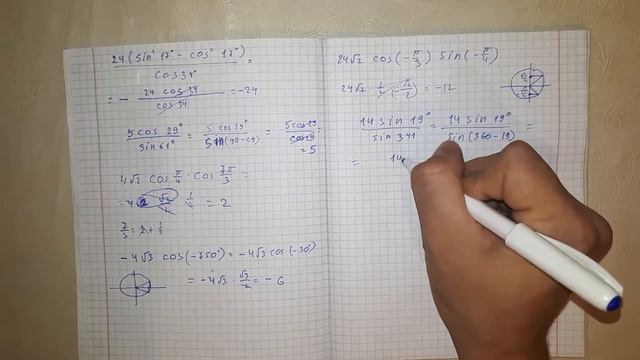 24(sin² 17° - cos² 17°) / cos 34° =
= - 24 cos 34 / cos 34 = -24
5 cos 29° / sin 61° = 5 cos 29° / sin(90-29) = 5 cos 29 / cos 29 = 5
4√2 cos π/4 · cos 7π/3 =
= 4 √2 · √2/2 · 1/2 = 2
7/3 = 2 + 1/3
-4√3 cos(-750°) = -4√3 cos(-30°)
= -4√3 · √3/2 = -6
24√2 cos(-π/3) sin(-π/4)
24√2 1/2 (-√2/2) = -12
14 sin 19° / sin 341 = 14 sin 19° / sin(360-19) =
= 14